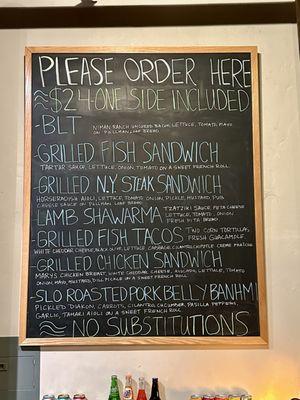 PLEASE ORDER HERE
$24-ONE SIDE INCLUDED
-BLT NIMAN RANCH UNCURED BACON, LETTUCE, TOMATO, MAYO
ON PULLMAN LOAF BREAD.
-GRILLED FISH SANDWICH
TARTAR SAUCE, LETTUCE, ONION, TOMATO ON A SWEET FRENCH ROLL.
-GRILLED N.Y. STEAK SANDWICH
HORSERADISH AIOLI, LETTUCE, TOMATO, ONION, PICKLE, MUSTARD, PUB
CHEESE SAUCE ON PULLMAN LOAF BREAD.
LAMB SHAWARMA TZATZIKI SAUCE FETA CHEESE
LETTUCE, TOMATO, ONION
FRESH PITA BREAD.
-GRILLED FISH TACOS TWO CORN TORTILLAS,
FRESH GUACAMOLE,
WHITE CHEDDAR CHEESE, BLACK OLIVE, LETTUCE, CABBAGE, CILANTRO, CHIPOTLE CREME FRAICHE
-GRILLED CHICKEN SANDWICH
MARYS CHICKEN BREAST, WHITE CHEDDAR CHEESE, AVOCADO, LETTUCE, TOMATO
ONION, MAYO, MUSTARD, DILL PICKLE ON A SWEET FRENCH ROLL
-SLO ROASTED PORK BELLY BANH MI
PICKLED DIAKON, CARROTS, CILANTRO CUCUMBER, PASILLA PEPPERS,
GARLIC, TAMARI AIOLI ON A SWEET FRENCH ROLL
NO SUBSTITUTIONS